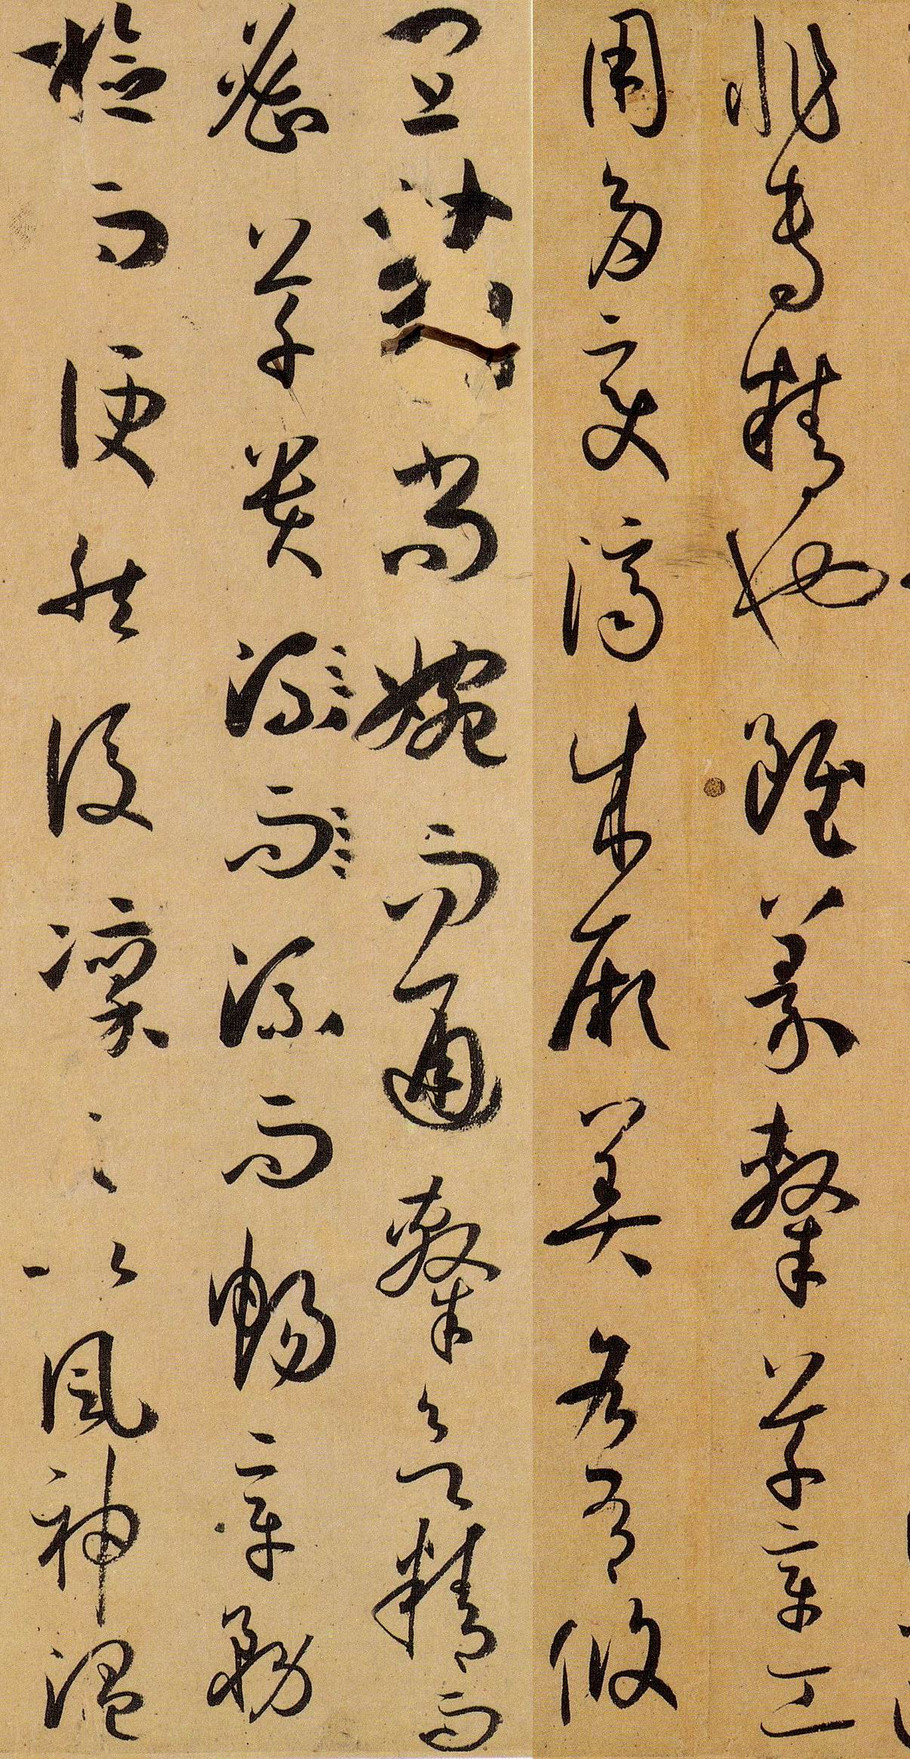 非專精也雖篆隸草章工
用多變濟成厥美各有攸
宜篆尚婉而通隸欲精而
密草貴流而流而暢章務
檢而便然後凜之以風神溫